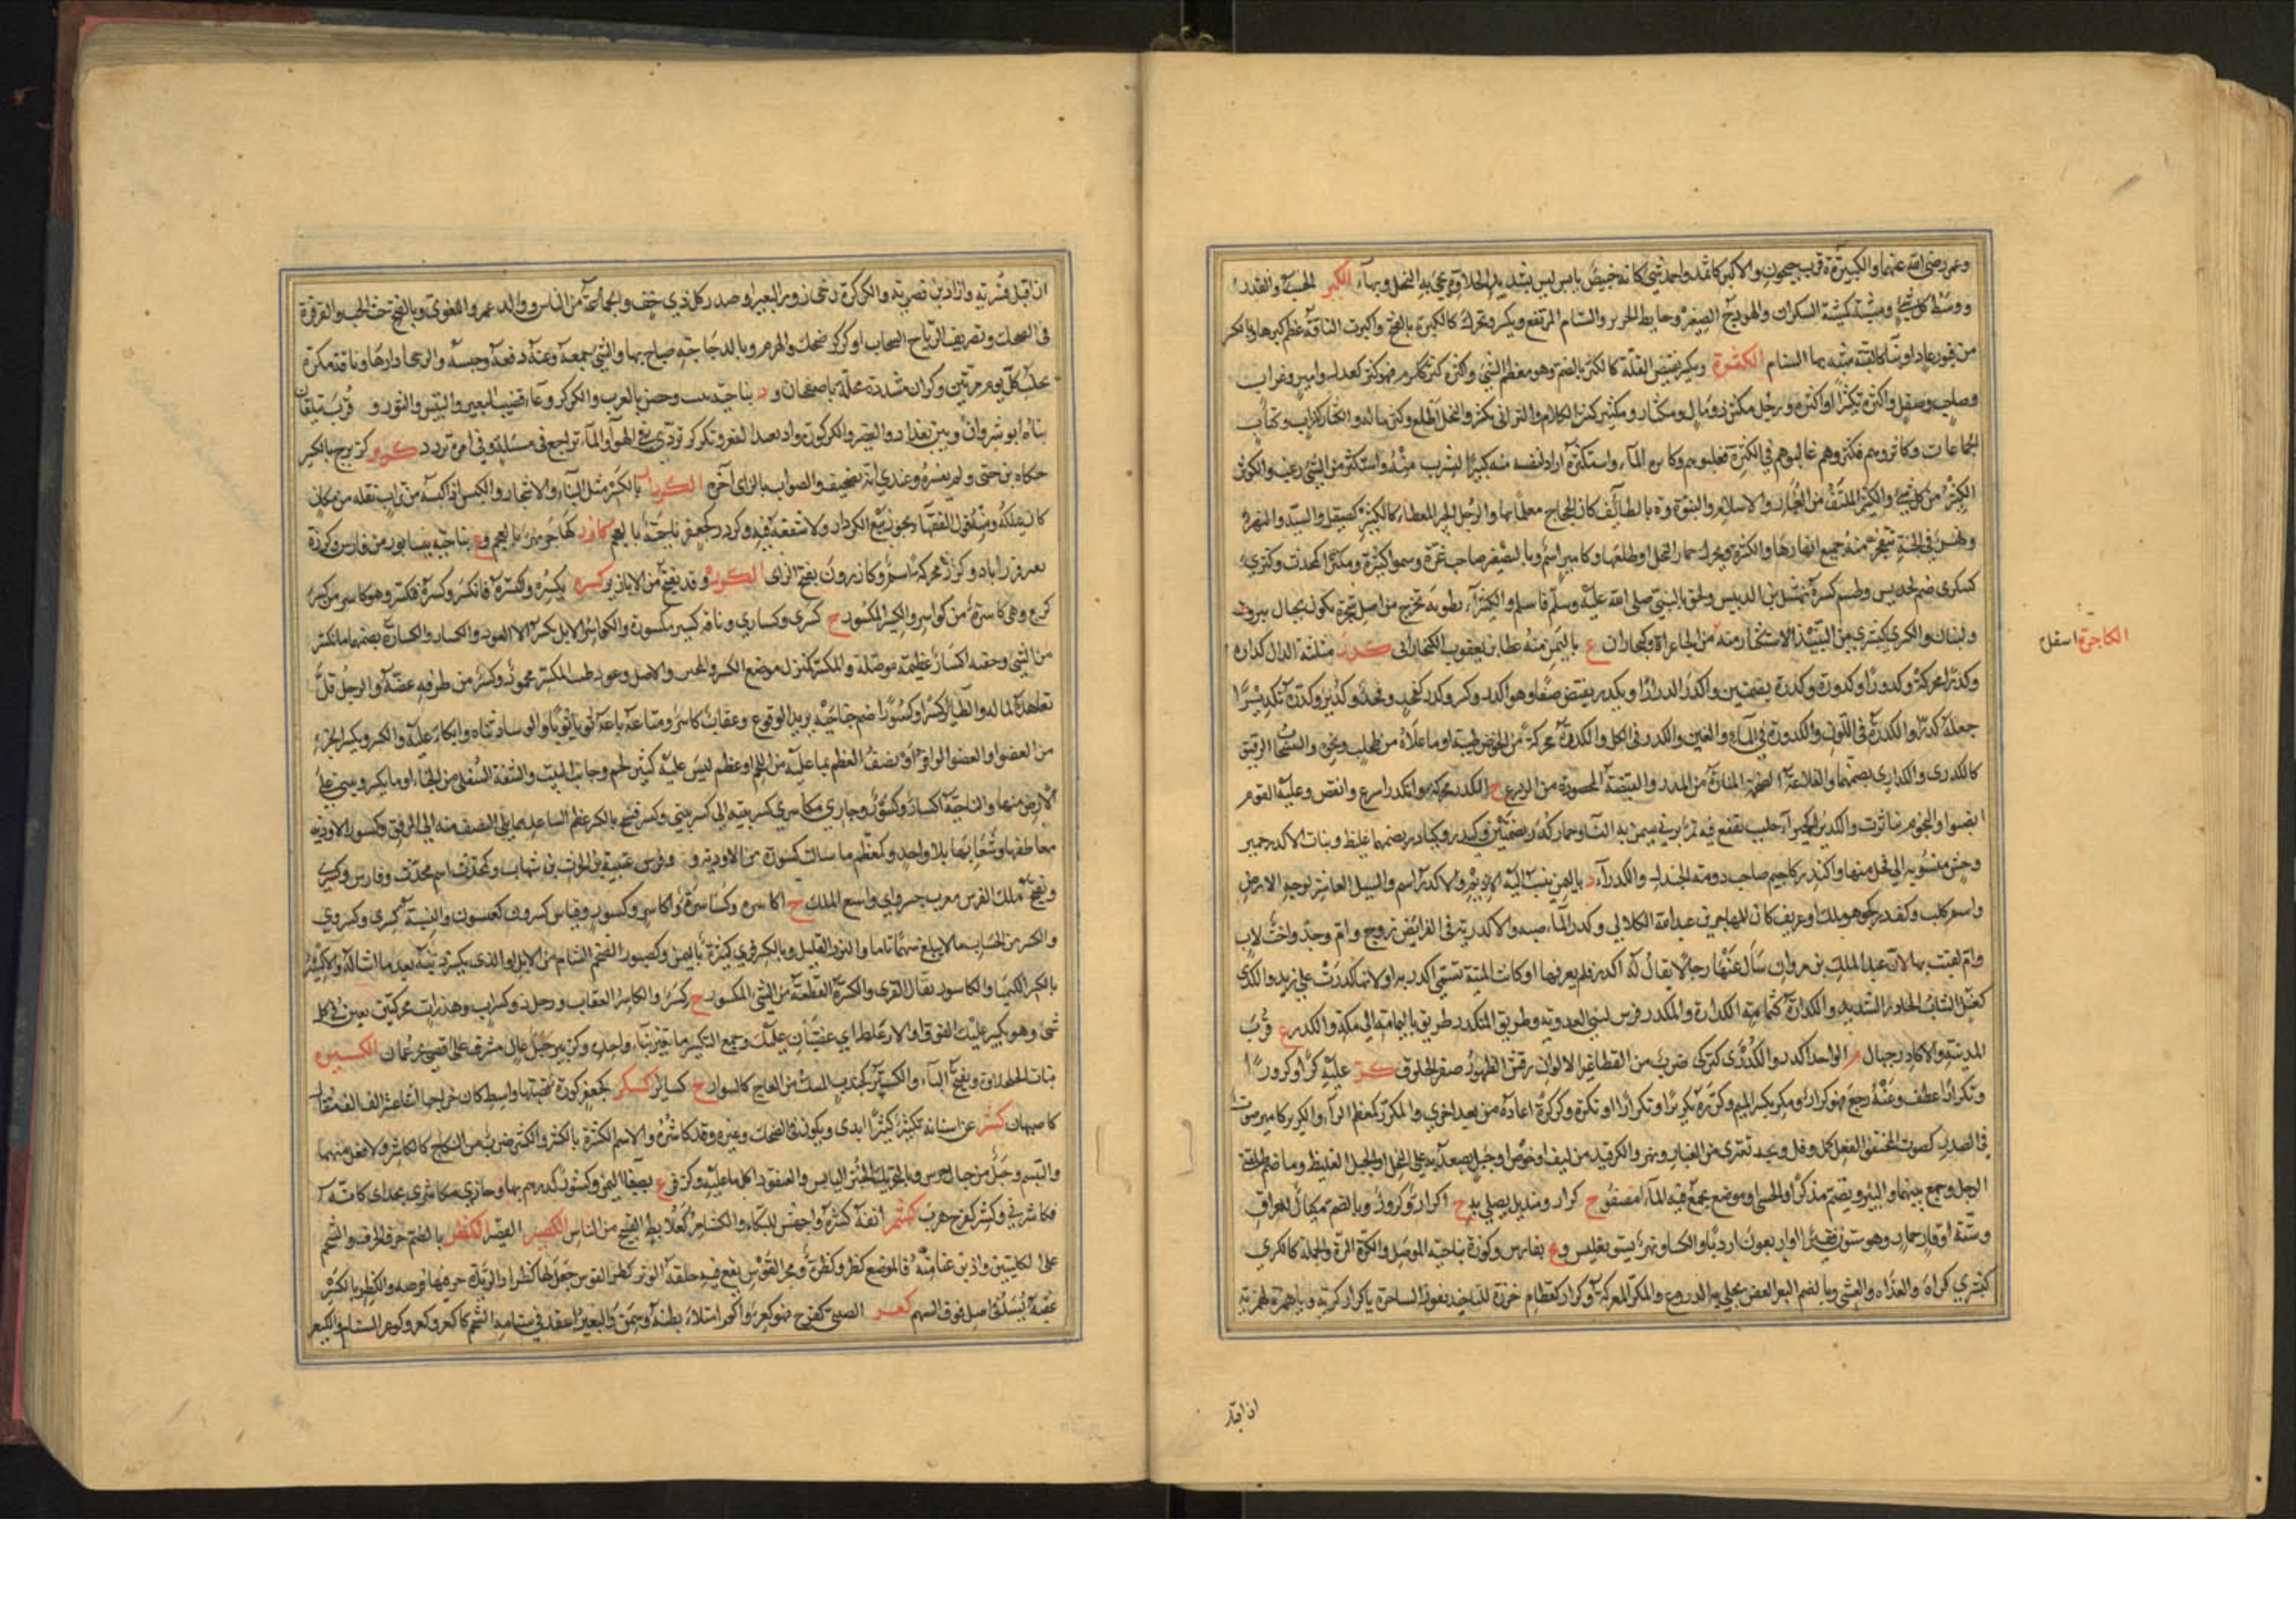 وعمر رضي الله عنهما والكبيرة ة قرب جيحون والاكبر كاثمد واحمد شئ كانه خبيص يابس ليس بشديد الحلاوة يجئ به النحل وبهاء الكبتر
ووسط كل شئ ومشية كمشية السكران والهودج الصغير وحايط الحرير والسنام المرتفع ويكسر ويحرك كالكترة بالفتح واكترت الناقة عظم كترها وبالكسر
من قبور عاد او بناء كالقبة شبه بها السنام الكثرة ويكسر نقيض القلة كالكثر بالضم وهو معظم الشئ واكثره كثر ككرم فهو كثر كعدل وامير وغراب
وصاحب وصيقل واكثره تكثيرا واكثره ورجل مكثر ذو مال ومكثار ومكثير كثير الكلام واكثر اتى بكثير والنخل اطلع وكثر ماله والكثار كغراب وكتاب
الجماعات وكاثروهم فكثروهم غالبوهم في الكثرة فغلبوهم وكاثره الماء واستكثره اراد لنفسه منه كثيرا ليشرب منه واستكثر من الشئ رغب والكوثر
الكثير من كل شئ والكثير الملتف من الغبار والاسلام والنبوة وة بالطائف كان الحجاج معلما بها والرجل الخير المعطاء كالكيثر كصيقل والسيد والنهر
ونهر في الجنة تتفجر منه جميع انهارها والكثر ويحرك جمار النخل او طلعها وكامير اسم وبالتصغير صاحب غرة وسموا كثيرة ومكثرا كمحدث وكثرى
كسكرى صنم لجديس وطسم كسره نهشل بن الدبيس ولحق بالنبي صلى الله عليه وسلم فاسلم والكثيراء رطوبة تخرج من اصل شجرة تكون بجبال بيروت
ولبنان
الكاجرة اسفل
من الجاعرة وكجاران ع باليمن منه عطاء بن يعقوب الكنجاراني كدر مثلثة الدال كدارة
وكدرا محركة وكدورا وكدورة وكدرة بضمتين واكدر اكدرارا وتكدر نقيض صفا وهو اكدر وكدر وكدر كفخذ وفخذ وكدير وكدره تكديرا
جعله كدرا والكدرة في اللون والكدورة في الماء والعين والكدر في الكل والكدرة محركة من الحوض طينه او ما علاه من طحلب ونحوه والسحاب الرقيق
كالكدري والكداري بضمهما والقلاعة الضخمة المثارة من المدر والقبضة المحصودة من الزرع ج الكدر محركة وانكدر اسرع وانقض وعليه القوم
انصبوا والنجوم تناثرت والكديراء كحميراء حليب ينقع فيه تمر برني يسمن به النساء وحمار كدر بضمتين وكيدر وكنادر بضمهما غليظ وبنات الاكدر حمير
وحش منسوبة الى فحل منها واكيدر كاحيمر صاحب دومة الجندل والكدراء د باليمن ينسب اليه الاديم والاكدر اسم والسيل العاشر لوجه الارض
واسم كلب وكفدر هو ملك او عريف كان للمهاجر بن عبدالله الكلابي وكدر الماء صبه والاكدرية في الفرائض زوج وام وجد واخت لاب
وام لقبت بها لان عبد الملك بن مروان سال عنها رجلا يقال له اكدر فلم يعرفها او كانت الميتة تسمى اكدرية او لانها كدرت على زيد والكدر
كعتل الشاب الحادر الشديد والكدارة كثمامة الكدادة والمكدر فرس لبني العدوية وطريق المنكدر طريق باليمامة الى مكة والكدر ع قرب
المدينة والاكادر جبال م الواحد اكدر والكدري كتركي ضرب من القطا غبر الالوان رقش الظهور صفر الحلوق كر عليه كرا وكرورا
وتكرارا عطف وعنه رجع فهو كرار ومكر بكسر الميم وكرره تكريرا وتكرارا وتكرة وكركره اعاده مرة بعد اخرى والمكرر كمعظم الراء والكرير كامير صوت
في الصدر كصوت المختنق الفعل كمل وقل وبحة تعترى من الغبار ونهر والكر قيد من ليف او خوص وحبل يصعد به على النخل او الحبل الغليظ وما ضم ظلفتي
الرحل وجمع بينهما والبئر ويضم مذكر او الحسي او موضع يجمع فيه الماء ليصفو ج كرار ومنديل يصلى به ج اكرار وكرور وبالضم مكيال للعراق
وستة اوقار حمار وهو ستون قفيزا او اربعون اردبا والكساء ونهر بتفليس وع بفارس وكورة بناحية الموصل والكرة المرة والحملة كالكرى
كبشرى كرات والغداة والعشى وبالضم البعر العفن تجلى به الدروع والمكر المعركة وكرار كقطام خرزة للتأخيذ تقول الساحرة ياكرار كريه وياهمرة اهمريه
اذا اقبل
ان اقبل فسريه وان ادبر فضريه والكركرة زحى زور البعير او صدر كل ذي خف والجماعة من الناس ووالد عمرو اللغوي وبالفتح تحت الحب والقرقرة
في الضحك وتصريف الرياح السحاب او كركر ضحك وانهزم وبالدجاجة صاح بها والشئ جمعه وعنه دفعه وحبسه والرحا ادارها وناقة مكرة
تحلب كل يوم مرتين وكران مشددة محلة باصفهان ود بناحية تبت وحصن بالغرب والكركر وعاء قضيب البعير والتيس والثور و قرب بيلقان
بناه انوشروان وبين بغداد والقفص والكركورة واد بعيد القعر وتكركر تردى في الهواء والماء تراجع في مسيله وفي امره تردد كزبر كزبرج بالكسر
حكاه بن جني ولم يفسره وعندي انه تصحيف والصواب بالزاى آخره الكردار بالكسر مثل البناء والاشجار والكبس اذا كبسه من تراب نقله من مكان
كان يملكه ومنه قول الفقهاء يجوز بيع الكردار ولا شفعة فيه وكردر كجعفر ناحية بالعجم كازر كهاجر نهر بالعجم وع بناحية نيسابور من فارس وكورة
بفيروزاباد وكزر محركة اسم وكازرون بفتح الزاى الكزبرة وقد تفتح من الابازير كسره يكسره واكتسره فانكسر وكسره فتكسر وهو كاسر من كسر
كركع وهي كاسرة من كواسر والكسير المكسور ج كسرى وكسارى وناقة كسير مكسورة والكواسر الابل تكسر العود والكسار والكسارة بضمهما ما تكسر
من الشئ وجفنة اكسار عظيمة موصلة والمكسر كمنزل موضع الكسر والمخبر والاصل وعود طيب المكسر محمود وكسر من طرفه غضه والرجل قل
تعاهده لماله والطائر كسرا وكسورا ضم جناحيه يريد الوقوع وعقاب كاسر ومتاعه باعه ثوبا ثوبا والوساد ثناه واتكأ عليه والكسر ويكسر الجزء
من العضو او العضو الوافر او نصف العظم بما عليه من اللحم او عظم ليس عليه كثير لحم وجانب البيت والشقة السفلى من الخباء او ما تكسر وتثنى على
الارض منها والناحية اكسار وكسور وجاري مكاسري كسر بيته الى كسر بيتي وكسر قبيح بالكسر عظم الساعد مما يلي النصف منه الى المرفق وكسور الاودية
معاطفها وشعابها بلا واحد وكمعظم ما سالت كسوره من الاودية و وفرس عتيبة بن الحرث بن شهاب وكمحدث اسم محدث وفارس وكسرى
ويفتح ملك الفرس معرب خسرو اي واسع الملك ج اكاسرة وكساسرة واكاسر وكسور وقياس كسرون كعيسون والنسبة كسرى وكسروي
والكسر من الحساب ما لا يبلغ سهما تاما والنزر القليل وبالكسر قرى كثيرة باليمن وكصبور الضخم السنام من الابل او الذي يكسر ذنبه بعد ما اشاله والاكسير
بالكسر الكيميا والكاسور بقال القرى والكسرة القطعة من الشئ المكسور ج كسر والكاسر العقاب ورجل ذو كسرات وهذرات محركتين يغبن في كل
شئ وهو يكسر عليك الفوق او الارعاظ اي غضبان عليك وجمع التكسير ما تغير بناء واحده وكزبير جبل عال مشرف على اقصى بحر عمان الكسبرة
نبات الجلجلان وتفتح الباء والكسبر كجندب المسك من العاج كالسوار ج كسابر كسكر كجعفر كورة قصبتها واسط كان خراجها اثنا عشر الف الف مثقال
كاصبهان كشر عن اسنانه تكثير كشرا ابدى ويكون في الضحك وغيره وقد كاشره والاسم الكشرة بالكسر والكشر ضرب من النكاح كالكاشر ولا فعل منهما
والتبسم وجبل من جبال جرش وبالتحريك الخبز اليابس والعنقود اكل ما عليه وكزفر ع بصنعاء اليمن وكشور كدرهم بها وجاري مكاشري بحذاي كانه
يكاشرني وكشر كفرح هرب كشمر انفه كسره واجهش للبكاء والكشامر كعلابط القبيح من الناس الكصير القصير الكظر بالضم حرف الفرج والشحم
على الكليتين واذ بن عنامنه فالموضع كظر وكظرة ومحز القوس يقع فيه حلقة الوتر كظر القوس جعل لها كظرا والزندة حزفيها فرضة والكظر بالكسر
عقبة تشد في اصل فوق السهم كعر الصبي كفرح فهو كعر واكعر امتلاء بطنه وسمن والبعير اعتقد في سنامه الشحم كاكعر وكعر وكوعر السنام والكيعر